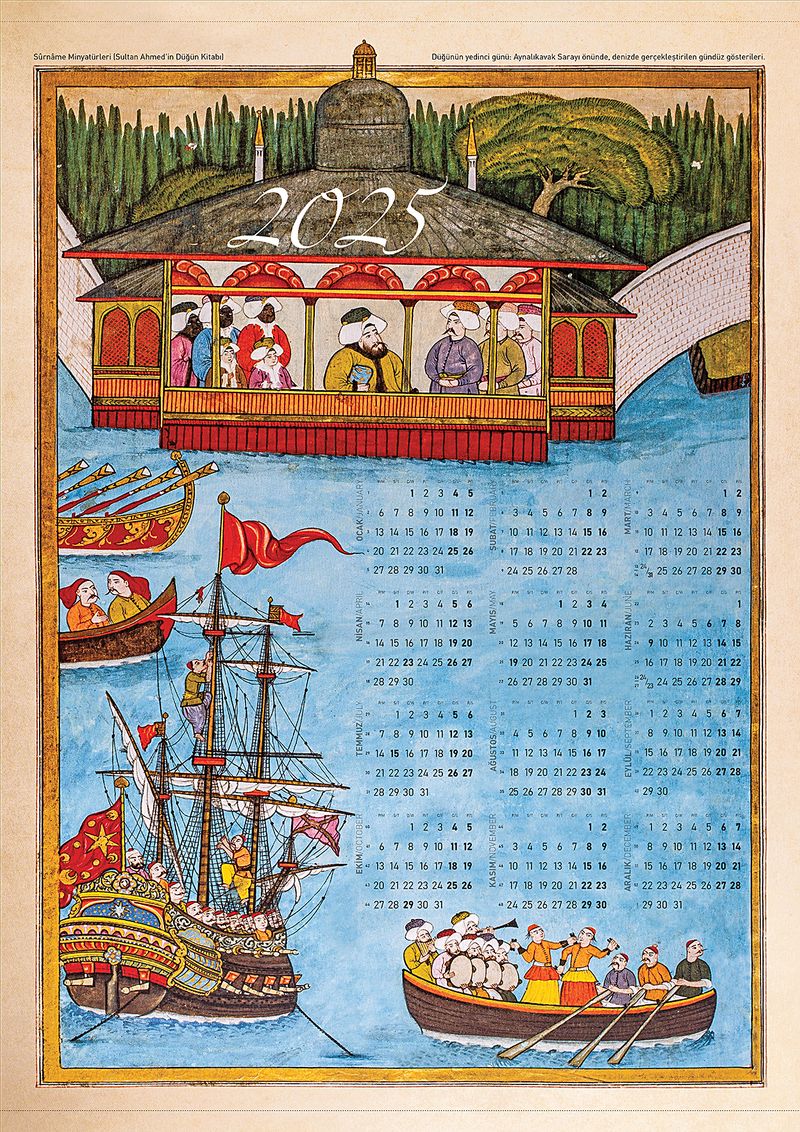 Sûrnâme Minyatürleri (Sultan Ahmed'in Düğün Kitabı)
Düğünün yedinci günü: Aynalıkavak Sarayı önünde, denizde gerçekleştirilen gündüz gösterileri.
2025
OCAK/JANUARY
1 2 3 4 5
6 7 8 9 10 11 12
13 14 15 16 17 18 19
20 21 22 23 24 25 26
27 28 29 30 31
ŞUBAT/FEBRUARY
1 2
3 4 5 6 7 8 9
10 11 12 13 14 15 16
17 18 19 20 21 22 23
24 25 26 27 28
MART/MARCH
1 2
3 4 5 6 7 8 9
10 11 12 13 14 15 16
17 18 19 20 21 22 23
24/31 25 26 27 28 29 30
NİSAN/APRIL
1 2 3 4 5 6
7 8 9 10 11 12 13
14 15 16 17 18 19 20
21 22 23 24 25 26 27
28 29 30
MAYIS/MAY
1 2 3 4
5 6 7 8 9 10 11
12 13 14 15 16 17 18
19 20 21 22 23 24 25
26 27 28 29 30 31
HAZİRAN/JUNE
1
2 3 4 5 6 7 8
9 10 11 12 13 14 15
16 17 18 19 20 21 22
24 25 26 27 28 29
TEMMUZ/JULY
1 2 3 4 5 6
7 8 9 10 11 12 13
14 15 16 17 18 19 20
21 22 23 24 25 26 27
28 29 30 31
AĞUSTOS/AUGUST
1 2 3
4 5 6 7 8 9 10
11 12 13 14 15 16 17
18 19 20 21 22 23 24
25 26 27 28 29 30 31
EYLÜL/SEPTEMBER
1 2 3 4 5 6 7
8 9 10 11 12 13 14
15 16 17 18 19 20 21
22 23 24 25 26 27 28
29 30
EKİM/OCTOBER
1 2 3 4 5
6 7 8 9 10 11 12
13 14 15 16 17 18 19
20 21 22 23 24 25 26
27 28 29 30 31
KASIM/NOVEMBER
1 2
3 4 5 6 7 8 9
10 11 12 13 14 15 16
17 18 19 20 21 22 23
24 25 26 27 28 29 30
ARALIK/DECEMBER
1 2 3 4 5 6 7
8 9 10 11 12 13 14
15 16 17 18 19 20 21
22 23 24 25 26 27 28
29 30 31